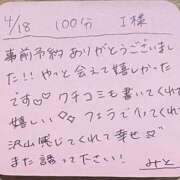 4/18 100分 I様
事前予約ありがとうございまし
た!! やっと会えて嬉しかった
です♡♡ クチコミも書いてくれて
嬉しい♡ フェラでイってくれて
沢山感じてくれて幸せ
また誘ってださい! みと